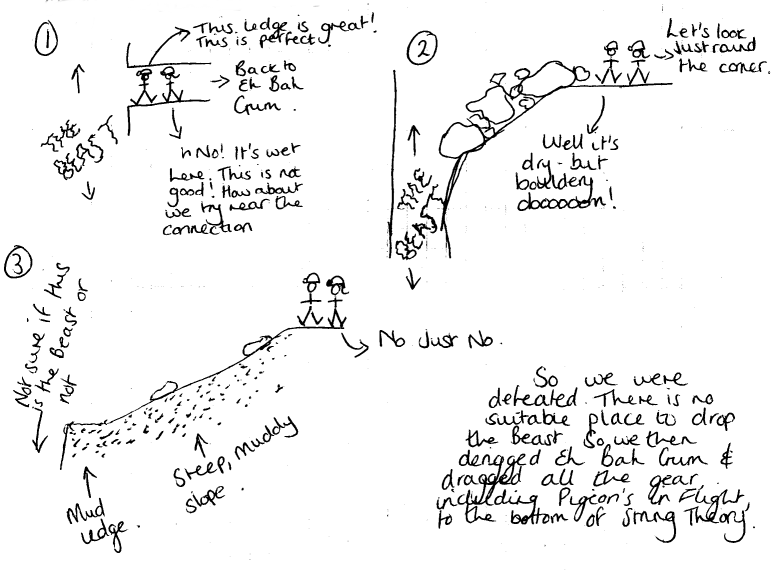 1
This ledge is great!
This is perfect!
Back to
Eh Bah
Gum.
No! It's wet
here. This is not
good! How about
we try near the
connection
BEAST
2
Let's look
just round
the corner.
Well it's
dry - but
bouldery
doooooom!
BEAST
3
Not sure if this
is the Beast or
not
No Just No.
Steep, muddy
slope.
Mud
ledge.
So we were
defeated. There is no
suitable place to drop
the Beast. So we then
derigged Eh Bah Gum &
dragged all the gear,
including Pigeon's in Flight,
to the bottom of String Theory.